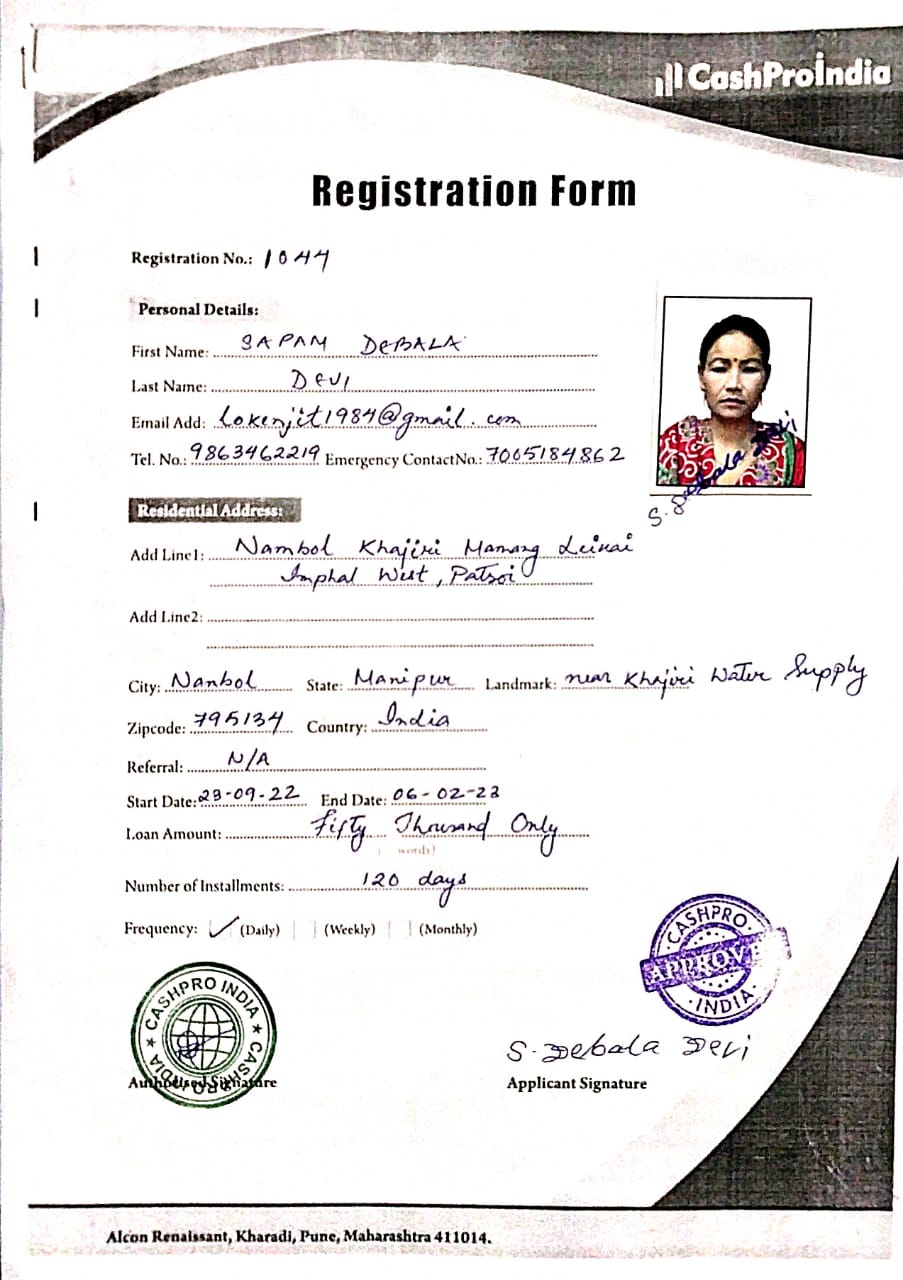 CashProIndia
Registration Form
Registration No.: 1044
Personal Details:
First Name: SAPAM DEBALA
Last Name: DEVI
Email Add: lokenjit1984@gmail.com
Tel. No.: 9863462219 Emergency Contact No.: 7005184862
S. Debala Devi
Residential Address:
Add Line1: Nambol Khajiri Mamang Leikai
Imphal West, Patsoi
Add Line2:
City: Nambol State: Manipur Landmark: near Khajiri Water Supply
Zipcode: 795134 Country: India
Referral: N/A
Start Date: 23-09-22 End Date: 06-02-23
Loan Amount: Fifty Thousand Only
words)
Number of Installments: 120 days
Frequency: ✓ (Daily) (Weekly) (Monthly)
CASHPRO
APPROVE
INDIA
CASHPRO INDIA ★ CASHPRO INDIA ★
S. Debala Devi
Authorised Signature Applicant Signature
Alcon Renaissant, Kharadi, Pune, Maharashtra 411014.